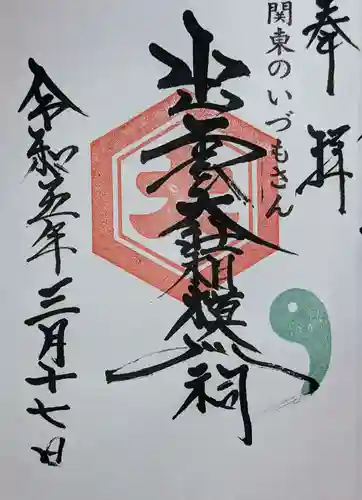 奉拝
関東のいづもさん
出雲大社相模分祠
令和五年三月十七日